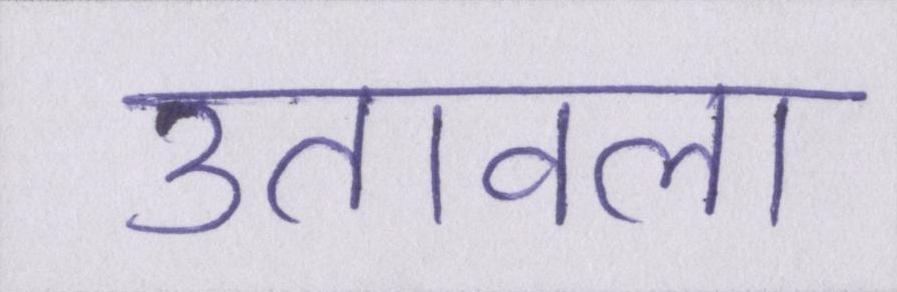 उतावला